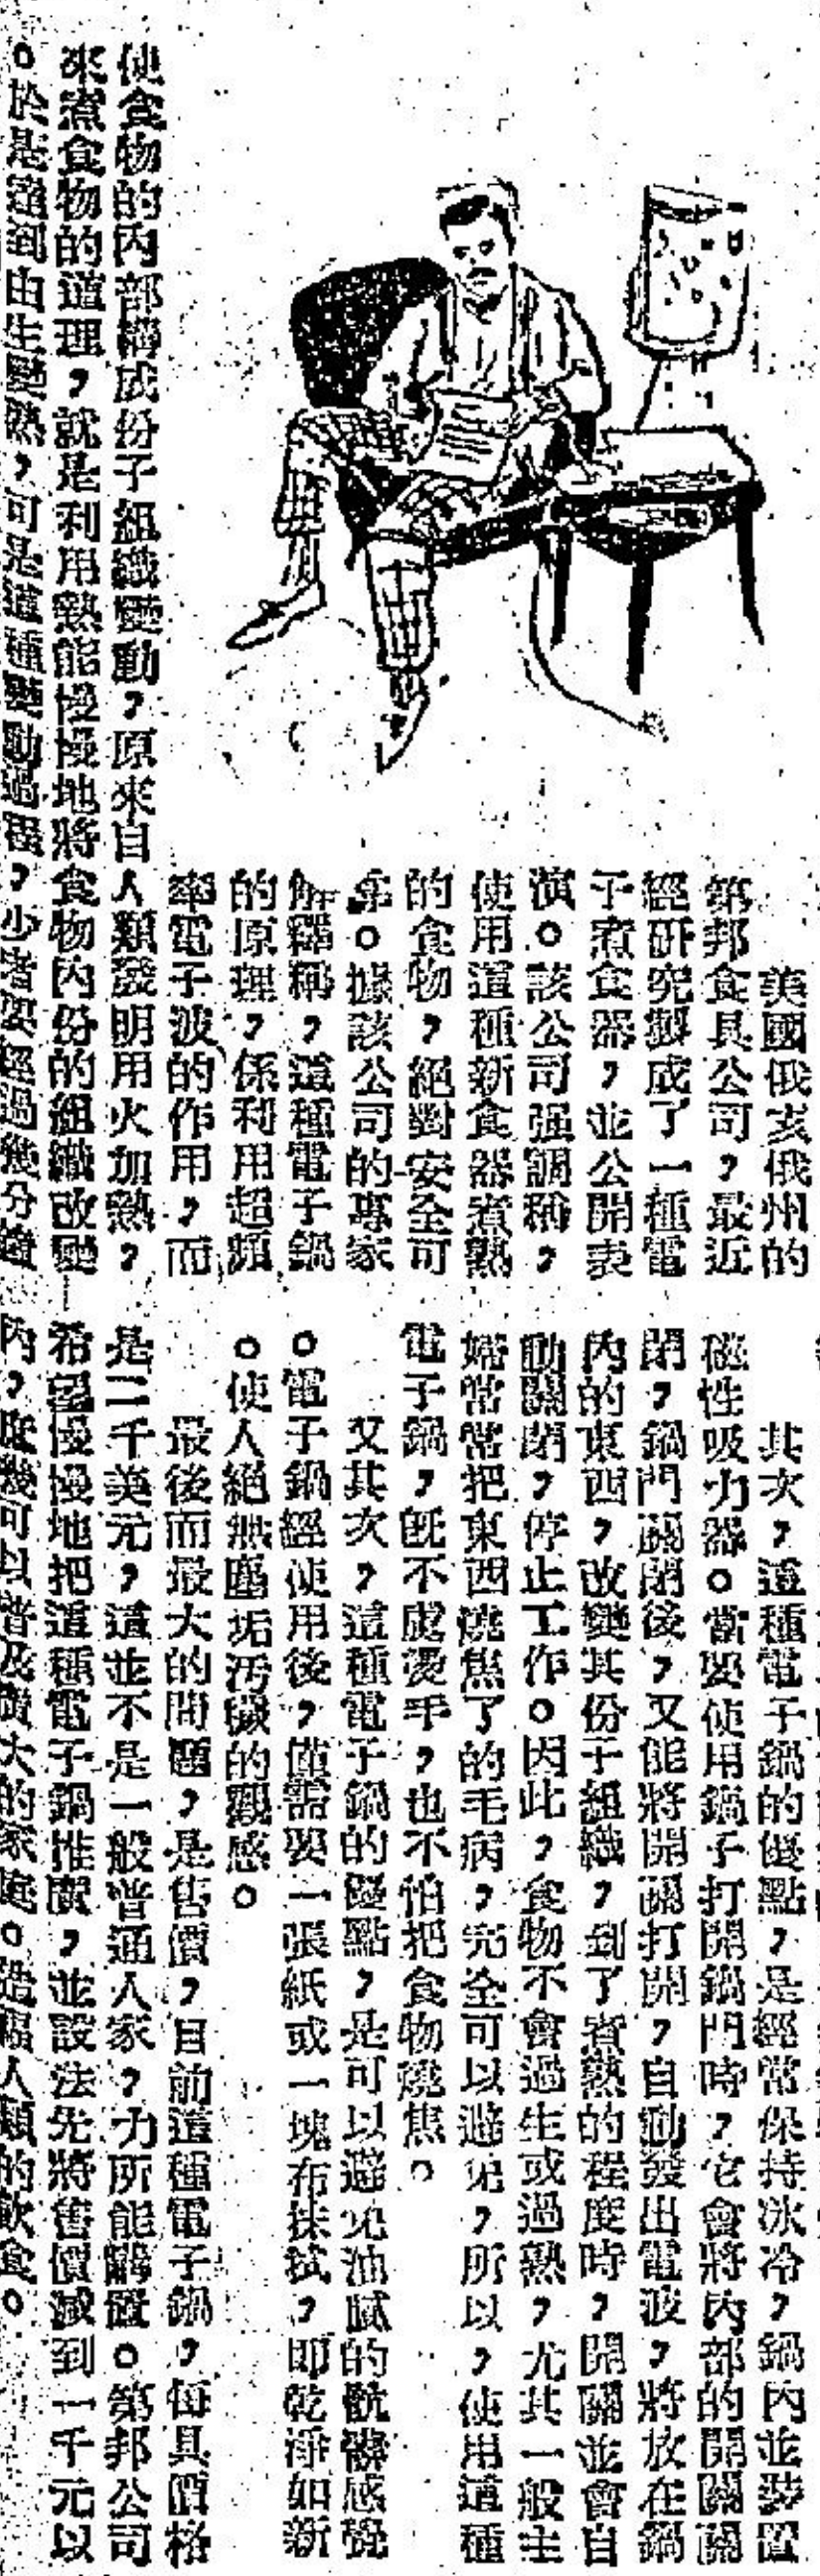 美國俄亥俄州的
第邦食具公司，最近
經研究製成了一種電
子煮食器，並公開表
演。該公司强調稱，
使用這種新食器煮熟
的食物，絕對安全可
拿。據該公司的專家
解釋稱，這種電子鍋
的原理，係利用超頻
率電子波的作用，而
使食物的內部構成份子組織變動，原來自人類發明用火加熱，
來煮食物的道理，就是利用熱能慢慢地將食物內份的組織改變
。於是達到由生變熟，可是這種變動過程，少者要經過幾分鐘
其次，這種電子鍋的優點，是經常保持冰冷，鍋內並涉置
磁性吸力器。當要使用鍋子打開鍋門時，它會將內部的開關關
閉，鍋門關閉後，又能將開關打開，自動發出電波，將放在鍋
內的東西，改變其份子組織，到了煮熟的程度時，開關並會自
動關閉，停止工作。因此，食物不會過生或過熟，尤其一般主
婦常常把東西燒焦了的毛病，完全可以避免，所以，使用這種
電子鍋，旣不處燙手，也不怕把食物燒焦。
又其次，這種電子鍋的優點，是可以避免油膩的骯髒感覺
。電子鍋經使用後，僅需要一張紙或一塊布抹拭，即乾淨如新
。使人絕無塵垢汚穢的觀感。
最後而最大的問題，是售價，目前這種電子鍋，每具價格
是二千美元，這並不是一般普通人家，力所能購置。第邦公司
希望慢慢地把這種電子鍋推廣，並設法先將售價減到一千元以
內，庶幾可以普及廣大的家庭。造福人類的飲食。